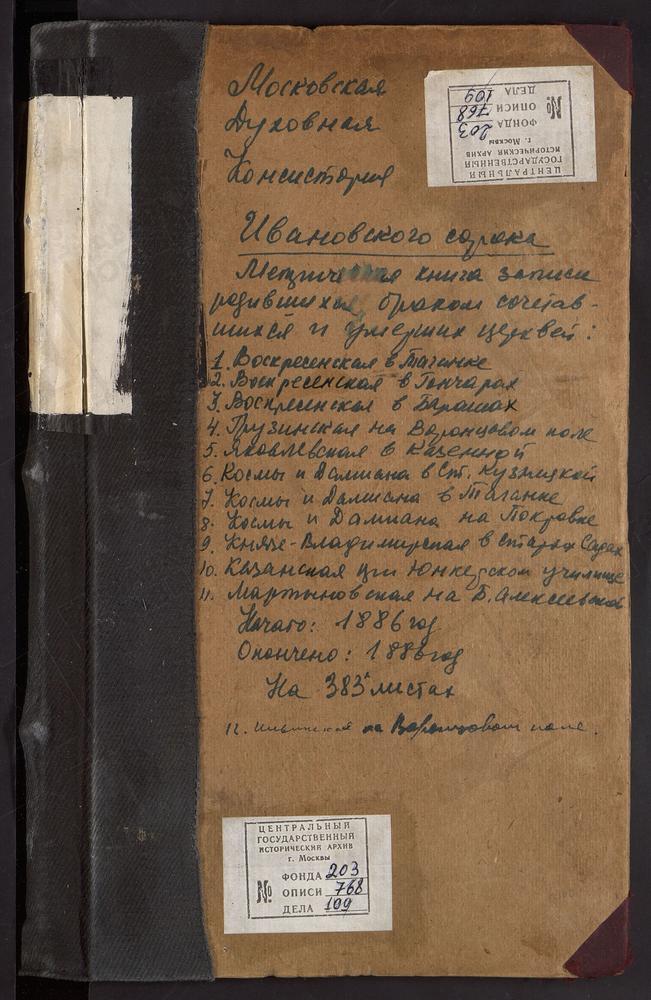 Московская
Духовная
Консистория
ЦЕНТРАЛЬНЫЙ
ГОСУДАРСТВЕННЫЙ
ИСТОРИЧЕСКИЙ АРХИВ
г. Москвы
№
ФОНДА 203
ОПИСИ 768
ДЕЛА 109
Ивановского сорока
Метрическая книга записи
родившихся, браком сочетав-
шихся и умерших церквей:
1. Воскресенская в Таганке
2. Воскресенская в Гончарах
3. Воскресенская в Барашах
4. Грузинская на Воронцовом поле
5. Яковлевская в Казенной
6. Космы и Дамиана в Ст. Кузнецкой
7. Космы и Дамиана в Таганке
8. Космы и Дамиана на Покровке
9. Князе-Владимирская в Старых Садах
10. Казанская при Юнкерском училище
11. Мартыновская на Б. Алексеевской
Начато: 1886 год
Окончено: 1886 год
На 383 листах
12. Ильинская на Воронцовом поле.
ЦЕНТРАЛЬНЫЙ
ГОСУДАРСТВЕННЫЙ
ИСТОРИЧЕСКИЙ АРХИВ
г. Москвы
№
ФОНДА 203
ОПИСИ 768
ДЕЛА 109